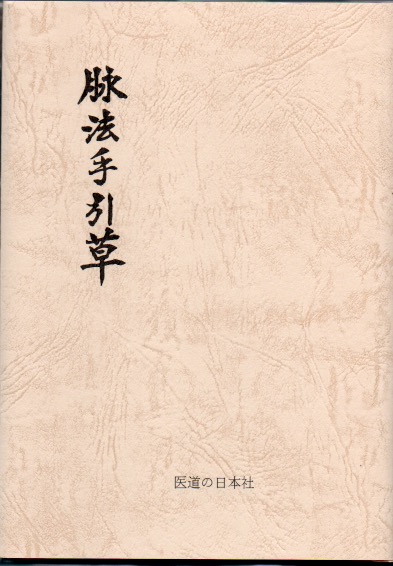 脉法手引草
医道の日本社